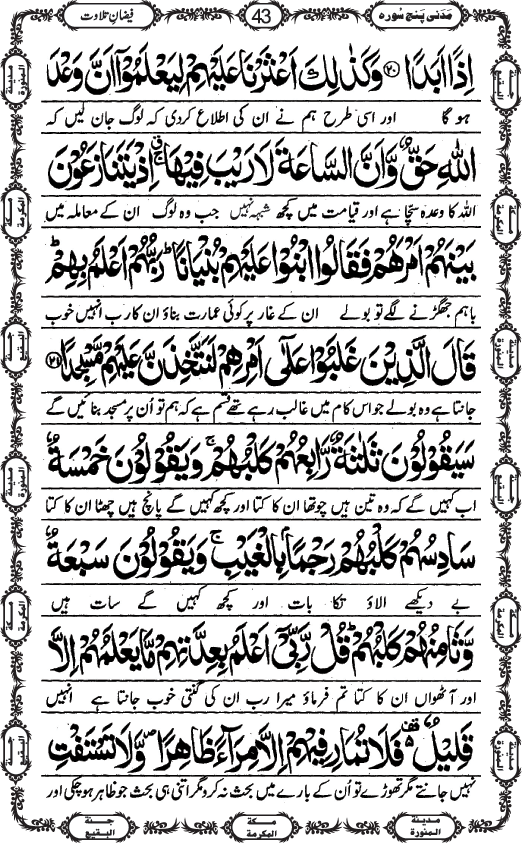 مَدَنی پنج سُورہ
43
فیضانِ تلاوت
اِذًا اَبَدًا ﴿۲۰﴾ وَكَذٰلِكَ اَعْثَرْنَا عَلَیْهِمْ لِیَعْلَمُوْۤا اَنَّ وَعْدَ
ہو گا اور اسی طرح ہم نے ان کی اطلاع کردی کہ لوگ جان لیں کہ
اللّٰهِ حَقٌّ وَّ اَنَّ السَّاعَةَ لَا رَیْبَ فِیْهَا ۚ اِذْ یَتَنَازَعُوْنَ
اللہ کا وعدہ سچا ہے اور قیامت میں کچھ شبہہ نہیں جب وہ لوگ ان کے معاملہ میں
بَیْنَهُمْ اَمْرَهُمْ فَقَالُوا ابْنُوْا عَلَیْهِمْ بُنْیَانًا ؕ رَبُّهُمْ اَعْلَمُ بِهِمْ ؕ
باہم جھگڑنے لگے تو بولے ان کے غار پر کوئی عمارت بناؤ ان کا رب انہیں خوب
قَالَ الَّذِیْنَ غَلَبُوْا عَلٰۤى اَمْرِهِمْ لَنَتَّخِذَنَّ عَلَیْهِمْ مَّسْجِدًا ﴿۲۱﴾
جانتا ہے وہ بولے جو اس کام میں غالب رہے تھے قسم ہے کہ ہم تو اُن پر مسجد بنائیں گے
سَیَقُوْلُوْنَ ثَلٰثَةٌ رَّابِعُهُمْ كَلْبُهُمْ ۚ وَ یَقُوْلُوْنَ خَمْسَةٌ
اب کہیں گے کہ وہ تین ہیں چوتھا ان کا کتا اور کچھ کہیں گے پانچ ہیں چھٹا ان کا کتا
سَادِسُهُمْ كَلْبُهُمْ رَجْمًۢا بِالْغَیْبِ ۚ وَ یَقُوْلُوْنَ سَبْعَةٌ
بے دیکھے الاؤ تکا بات اور کچھ کہیں گے سات ہیں
وَّ ثَامِنُهُمْ كَلْبُهُمْ ؕ قُلْ رَّبِّیْۤ اَعْلَمُ بِعِدَّتِهِمْ مَّا یَعْلَمُهُمْ اِلَّا
اور آٹھواں ان کا کتا تم فرماؤ میرا رب ان کی گنتی خوب جانتا ہے انہیں
قَلِیْلٌ ۬۫ فَلَا تُمَارِ فِیْهِمْ اِلَّا مِرَآءً ظَاهِرًا ۪ وَّ لَا تَسْتَفْتِ
نہیں جانتے مگر تھوڑے تو اُن کے بارے میں بحث نہ کرو مگر اتنی ہی بحث جو ظاہر ہو چکی اور
جنة البقیع
مکة المکرمة
مدینة المنورة
جنة البقیع
مکة المکرمة
مدینة المنورة
مدینة المنورة
مکة المکرمة
جنة البقیع
مدینة المنورة
مکة المکرمة
جنة البقیع
مدینة المنورة
مکة المکرمة
جنة البقیع